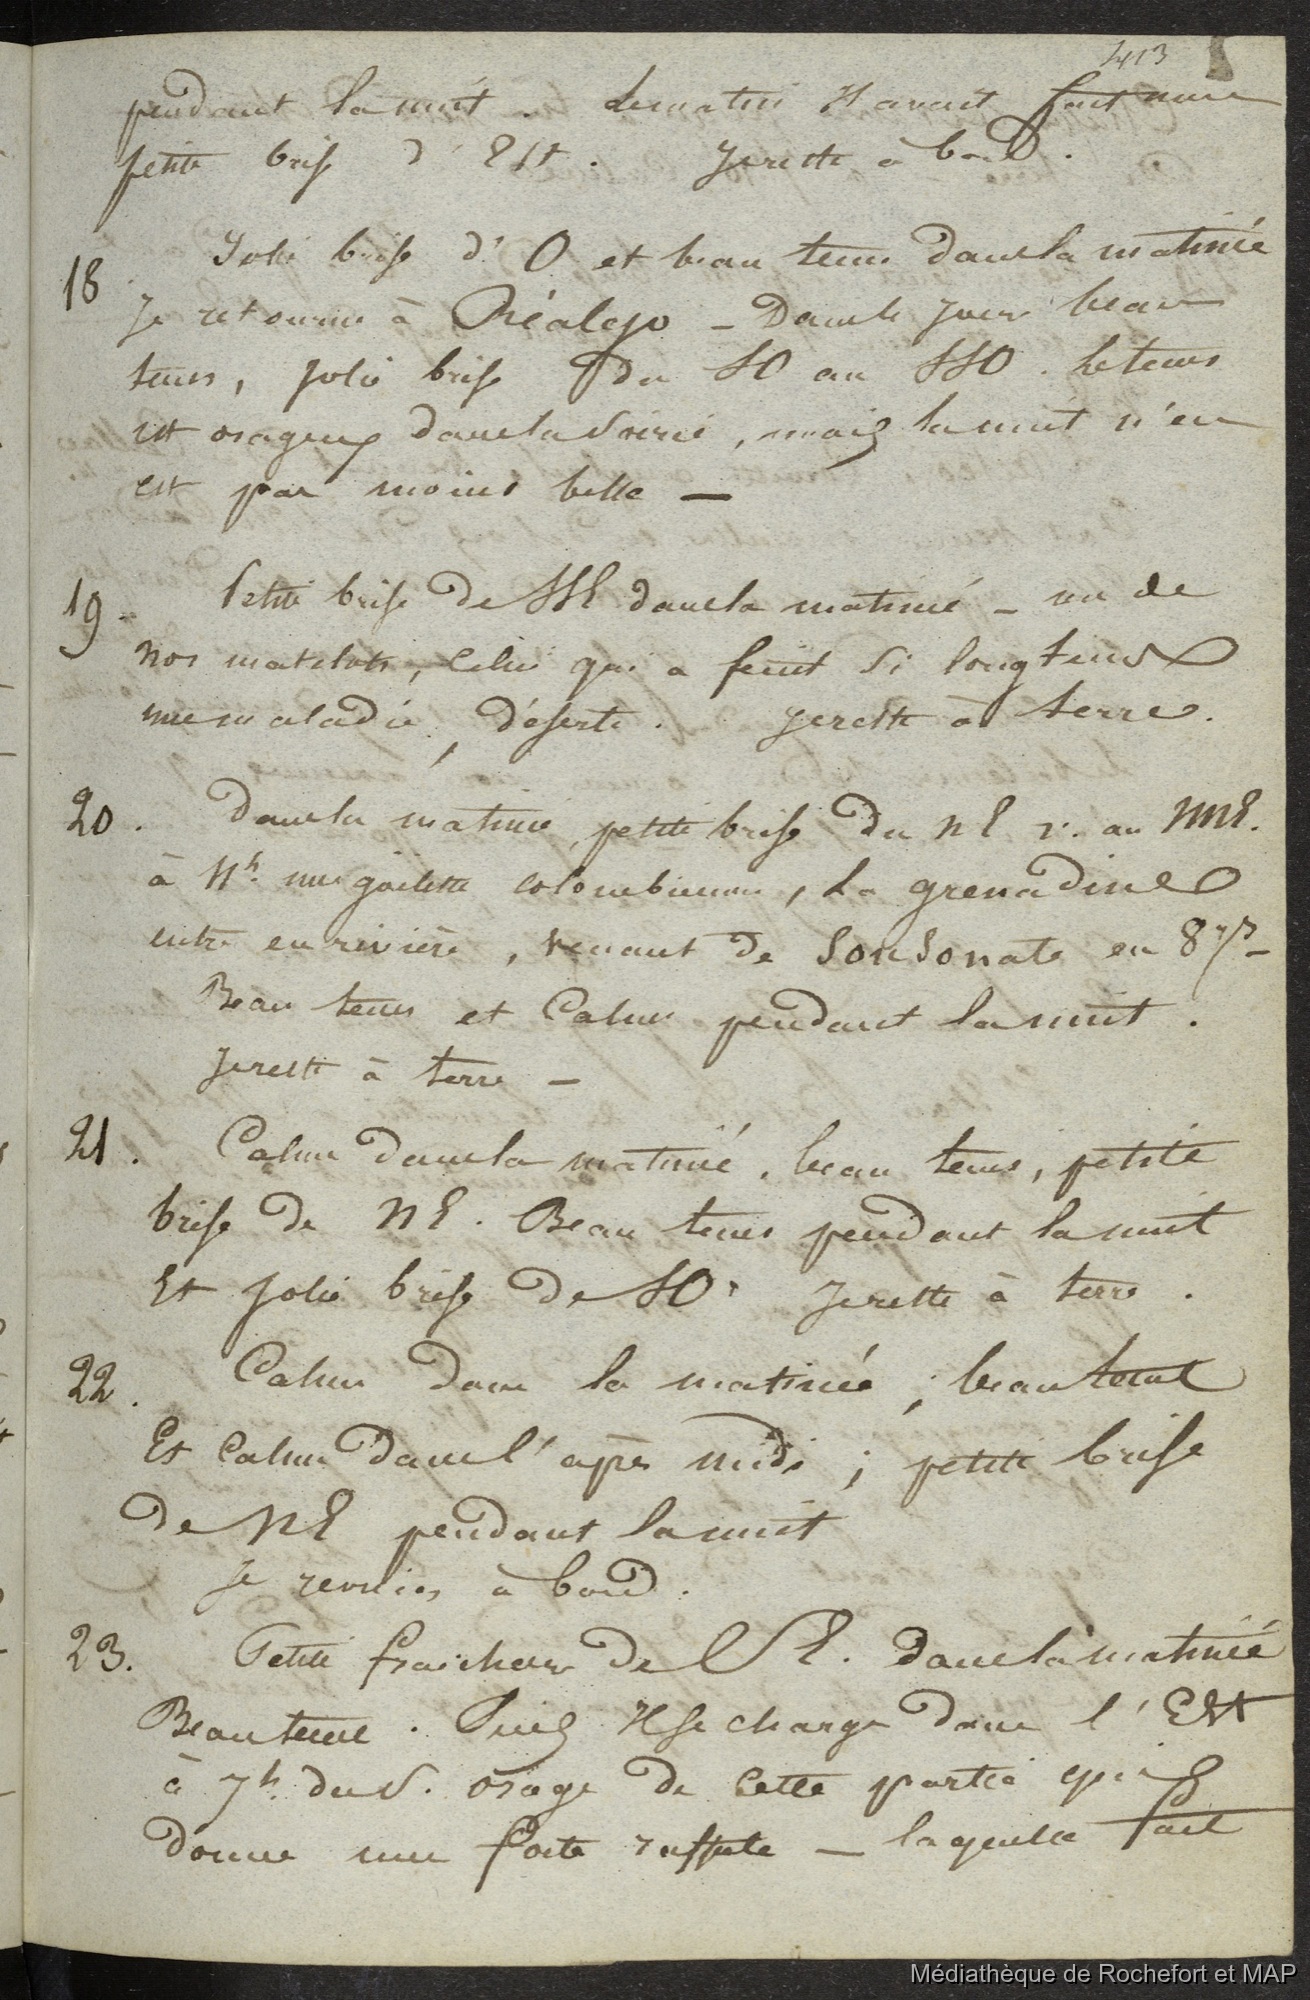 413
pendant la nuit. Le matin il avait fait une
petite brise d'Est. Je reste à bord.
18. Jolie brise d'O et beau tems dans la matinée
Je retourne à Réalejo - Dans le jour beau
tems, jolie brise du SO au SSO. le tems
est orageux dans la Soirée, mais la nuit n'en
est pas moins belle —
19. Petite brise de SSE dans la matinée - un de
nos matelots, Celui qui a feint si longtems
une maladie, déserte. Je reste à terre.
20. Dans la matinée, petite brise du NE v. au NNE.
à 11h. une goëlette colombienne, La grenadine
entre en rivière, venant de Sonsonate en 8 jrs -
Beau tems et Calme pendant la nuit.
Je reste à terre -
21. Calme dans la matinée, beau tems, petite
brise de NE. Beau tems pendant la nuit
Et jolie brise de SO. Je reste à terre.
22. Calme dans la matinée, beau tems
Et Calme dans l'après midi ; petite brise
de NE pendant la nuit
Je reviens à bord.
23. Petite fraicheur de SE. dans la matinée
Beau tems. Puis Il se charge dans l'Est
à 7h. du S. orage de cette partie qui
donne une forte raffale — laquelle fait
Médiathèque de Rochefort et MAP